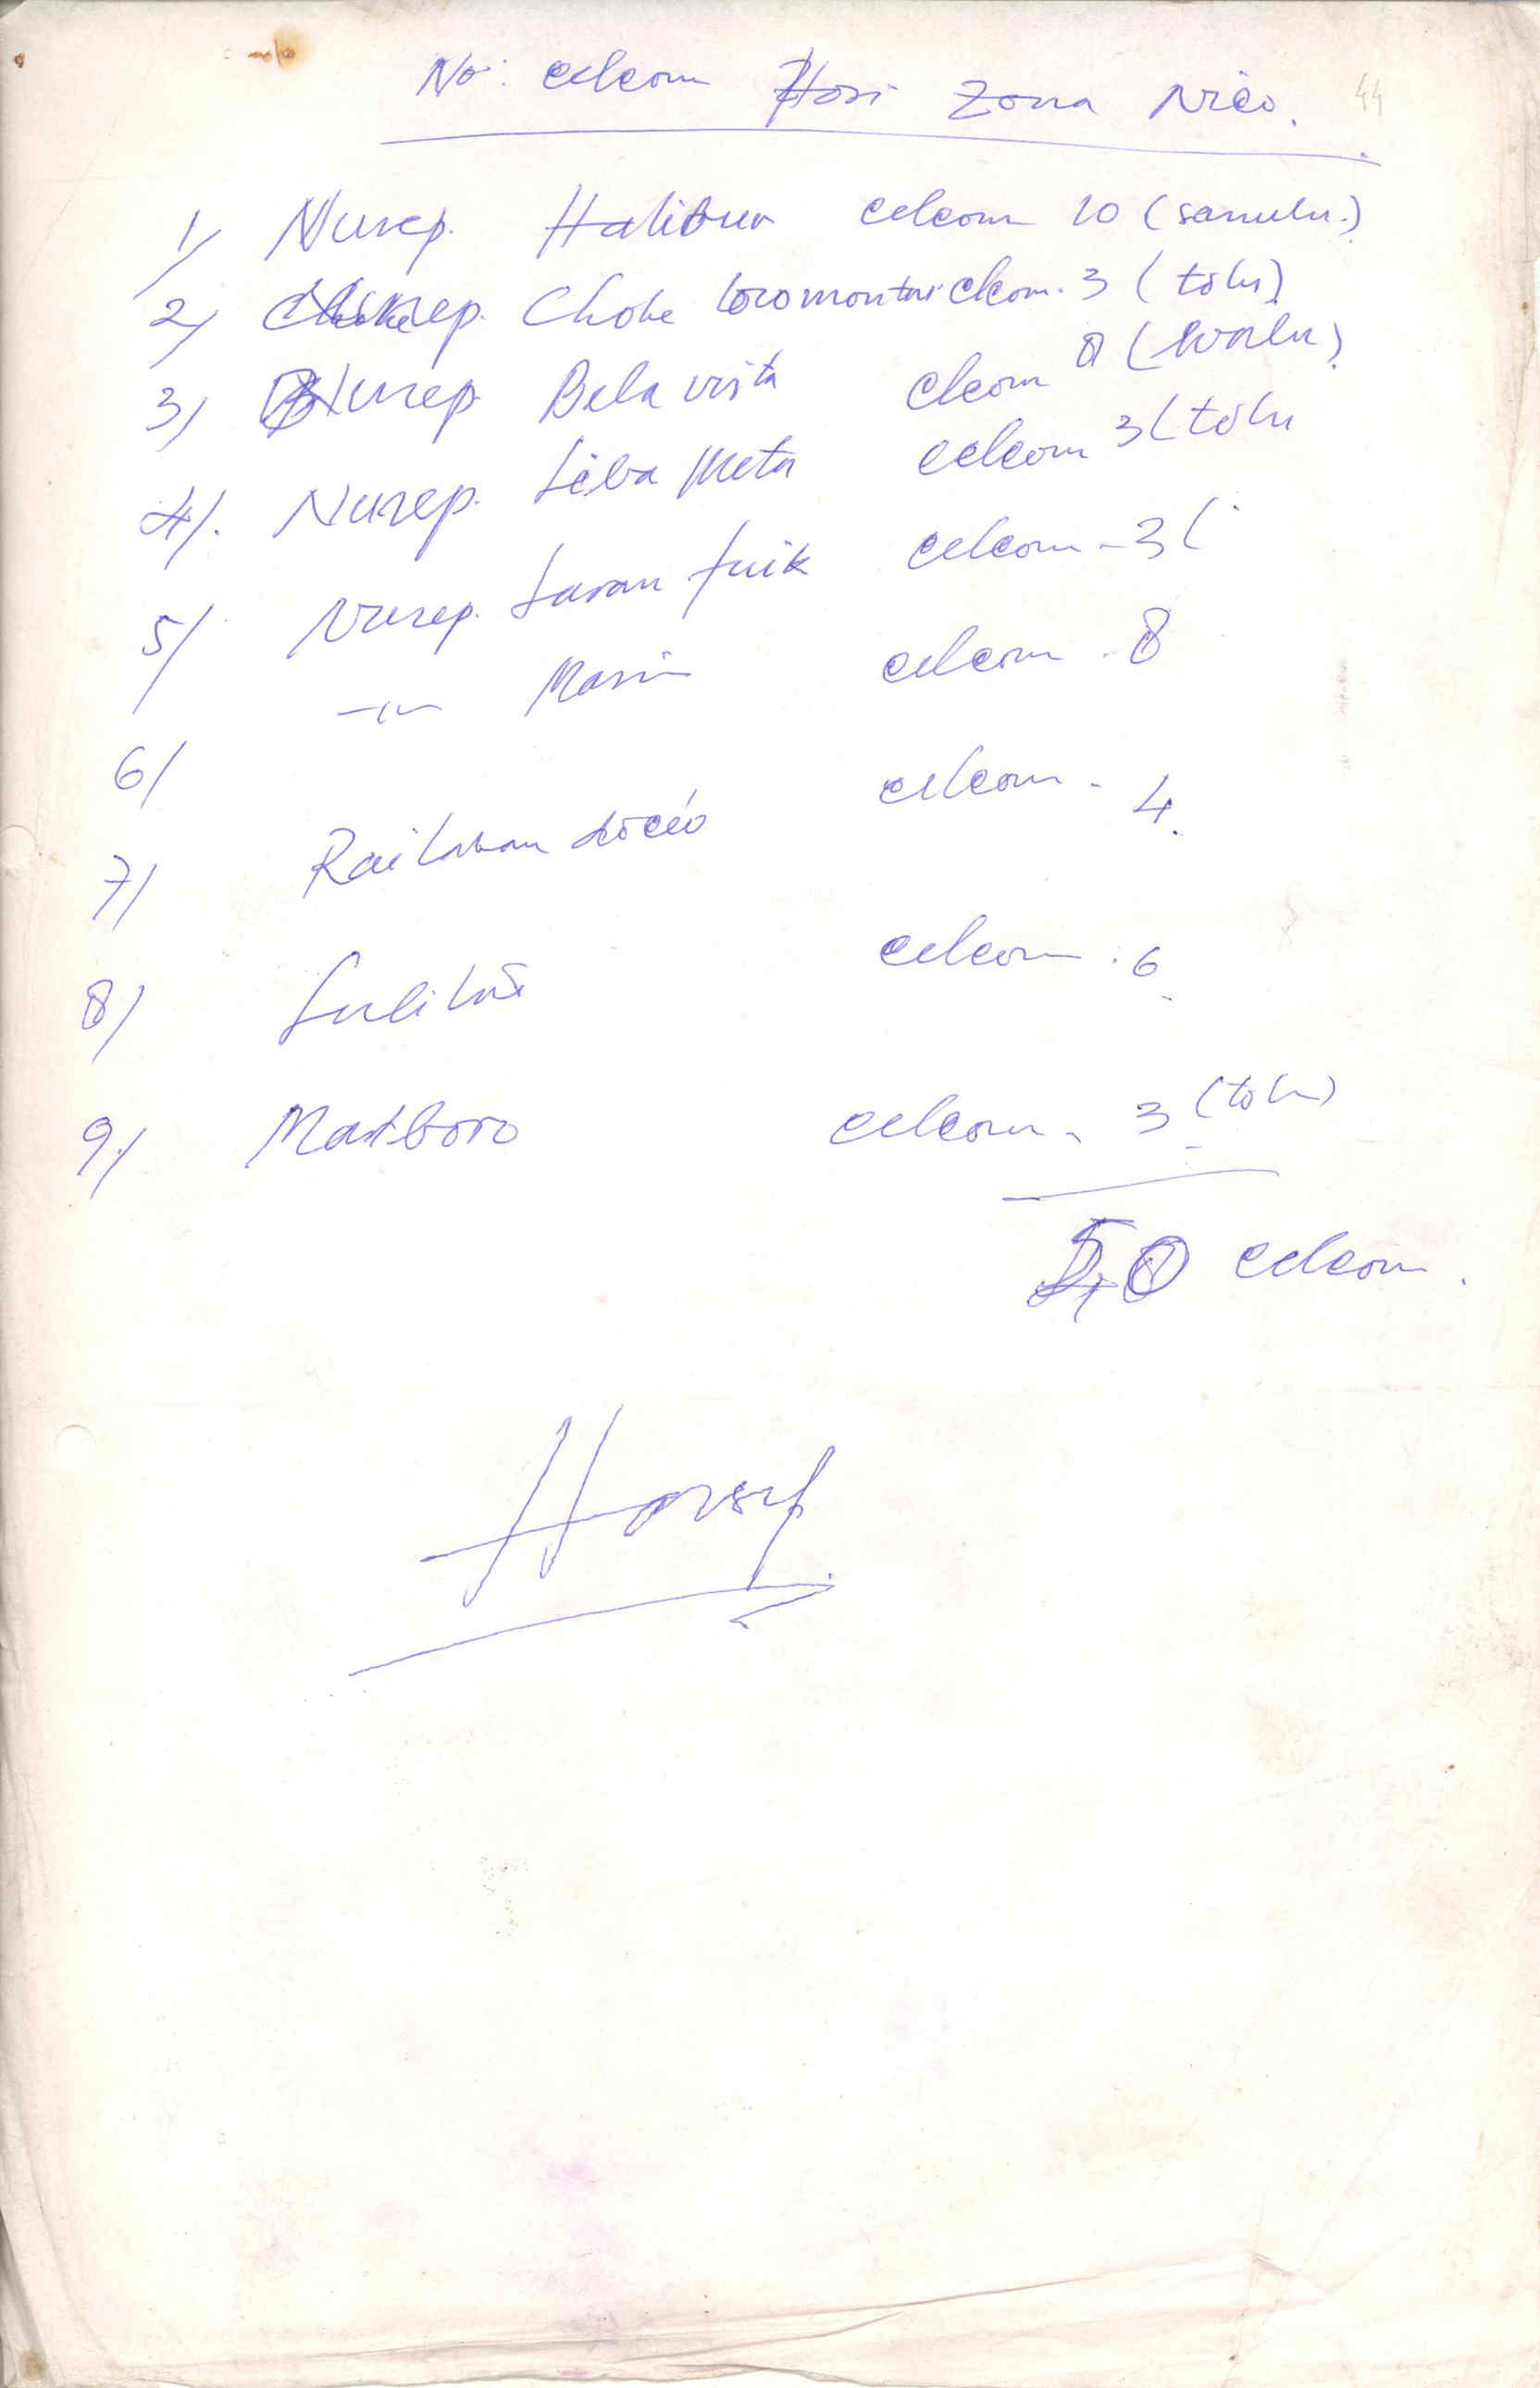 No: celcom Hosi Zona Nico.
44
1/ Nurep. Halibur celcom 10 (sanulu.)
2/ Nurep. Chole loromontu celcom. 3 (tolu)
3/ Nurep. Bela vista celcom 8 (Walu)
4/. Nurep. Liba Meta celcom 3 (tolu
5/ Nurep. Lavan fuik celcom - 3 (
-"- celcom. 8
6/
7/ Railakan celcom. 4.
8/ celcom. 6
9/ Marlboro celcom. 3 (tolu)
50 celcom.